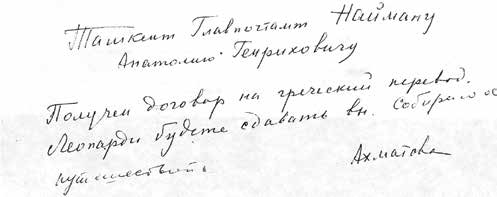 Ташкент Главпочтамт Найману
Анатолию Генриховичу
Получен договор на греческий перевод.
Леопарди будете сдавать вы. Собираюсь
путешествовать
Ахматова